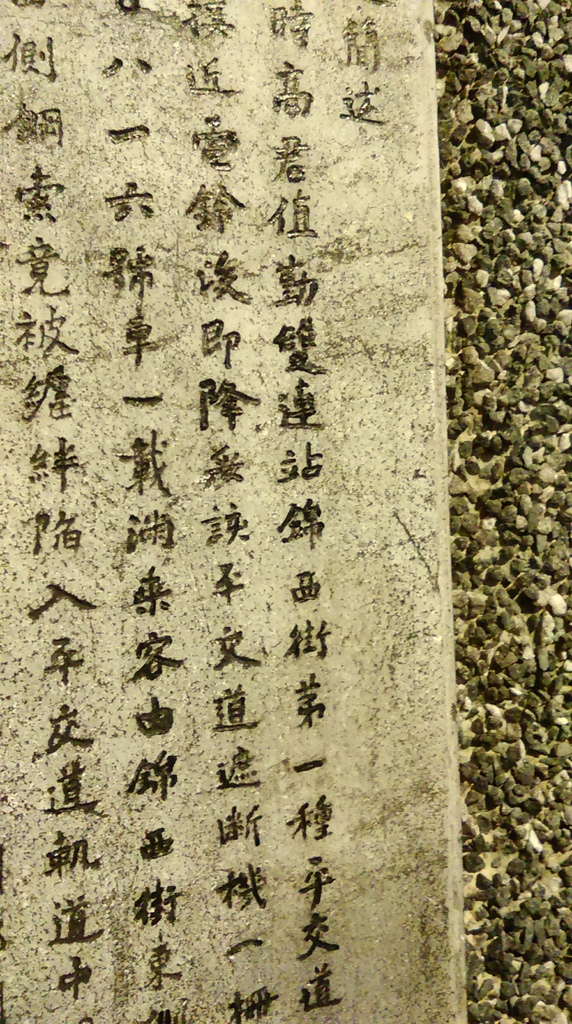 簡述
時高君值勤雙連站錦西街第一種平交道
近電鈴後即降無該平交道遮断機一柵
八一六號車一載滿乘客由錦西街東側
側鋼索竟被纏絆陷入平交道軌道中